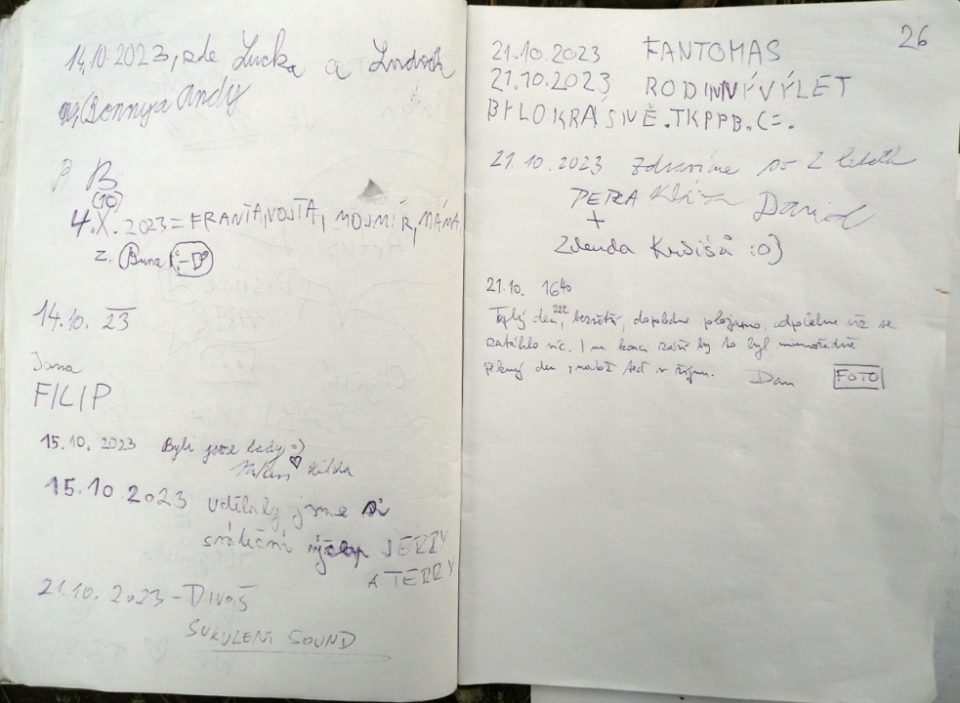 14.10.2023, zde Lucka a Ludvík
Bonnya Andy
B B
(10)
4.X. 2023 = FRANTA, VOJTA, MOJMÍR, MÁMA
z. Brna :-D
14.10. 23
Jana
FILIP
15.10. 2023 Byli jsme tady =)
♡
15.10.2023 udělaly jsme si
sváteční výšlap JERRY
A TERRY
21.10. 2023 - DIVOŠ
SUKULENT SOUND
26
21.10.2023 FANTOMAS
21.10.2023 RODINNÝ VÝLET
BYLO KRÁSNĚ. TKPPB. C=.
21.10.2023 Zdravíme po 2 letech
PETRA David
+
Zdenda :o)
21.10. 16⁴⁰
Teplý den, bezvětří, dopoledne polojasno, odpoledne už se
zatáhlo víc. I na konci září by to byl mimořádně
pěkný den, natož teď v říjnu. Dan FOTO